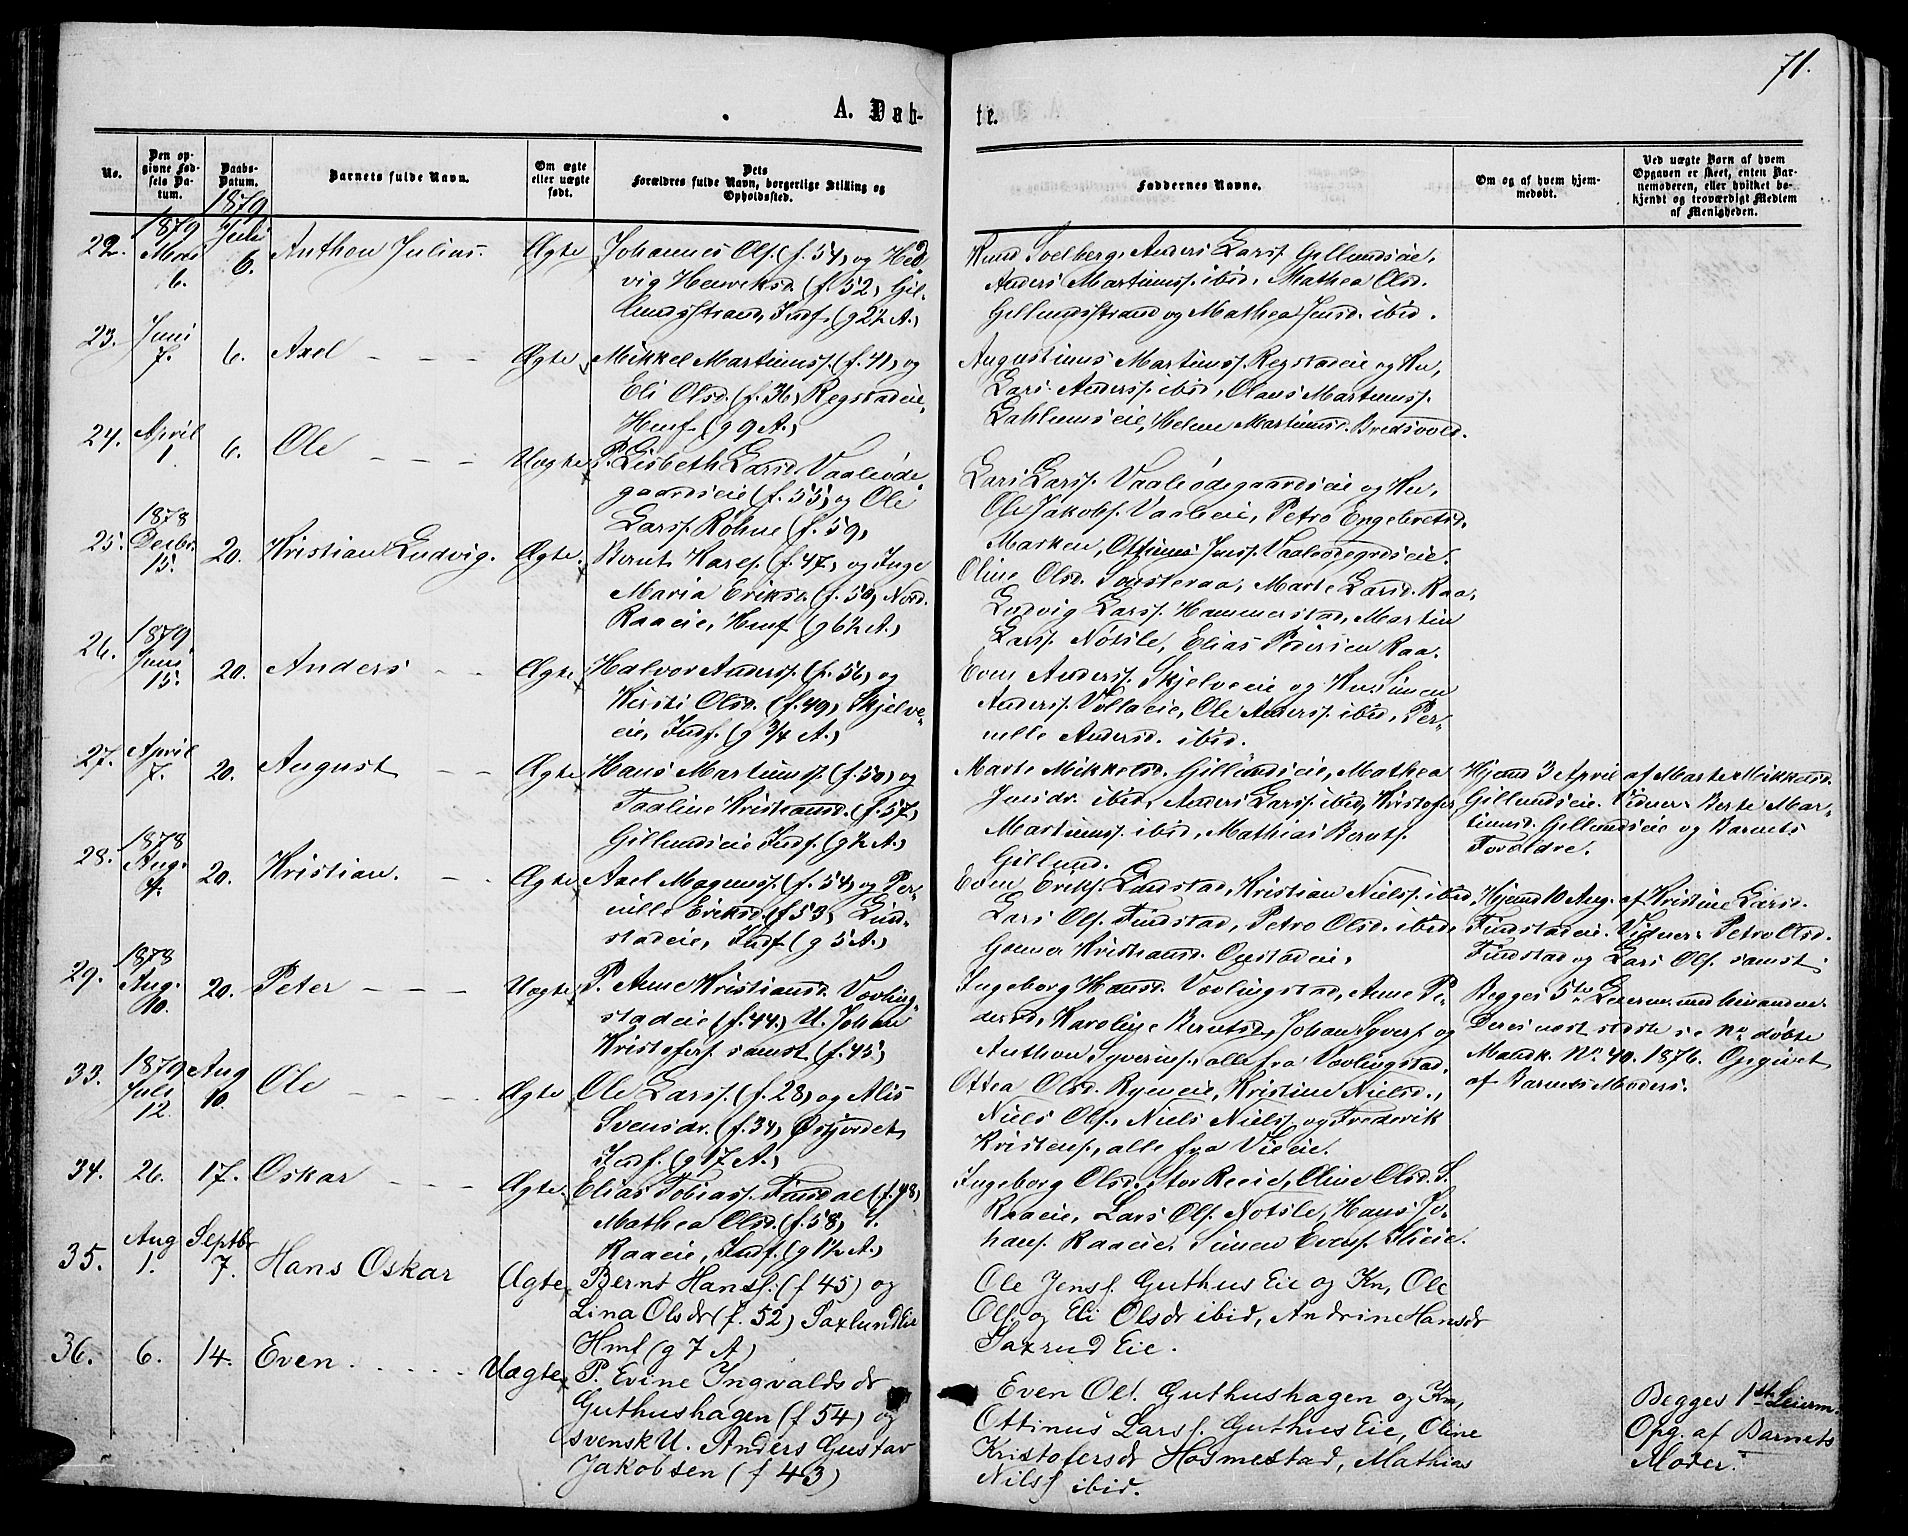 71.
A. Døb-
te.
No.
Den op-
givne Fød-
sels Da-
tum.
Daabs-
Datum.
Barnets fulde Navn.
Om ægte
eller uægte
født.
Dets
Forældres fulde Navn, borgerlige Stilling og
Opholdssted.
Faddernes Navne.
Om og af hvem hjem-
medøbt.
Ved uægte Børn af hvem
Opgaven er skeet, enten Bar-
nemoderen, eller hvilket be-
kjendt og troværdigt Medlem
af Menigheden.
22.
1879
6.
1879
Juli
6.
Anthon Julius.
Ægte
Johannes Ols. (f. 54) og Hed-
vig Henriksd. (f. 52) Gil-
lundsstrand, Indf. (g 2½ A.)
Knud Solberg, Anders Larss. Gillundseie,
Anders Martinuss. ibid, Mathea Olsd.
Gillundsstrand og Mathea Jensd. ibid.
23.
Juni
7.
6.
Axel
Ægte
Mikkel Martinuss. (f. 41) og
Eli Olsd. (f. 36) Regstadeie,
Hmf. (g 9 A.)
Augustinus Martinuss. Regstadeie og Kn,
Lars Anderss. ibid, Olaus Martinuss.
Dahlumseie, Helene Martinusd. Bredsvold.
24.
April
1
6.
Ole
Uægte
P. Lisbeth Larsd. Vaaleøde-
gaardseie (f. 55) og Ole
Larss. Røhne (f. 59)
Lars Larss. Vaaleødegaardseie og Kn,
Ole Jakobs. Vaaleeie, Petro Engebretsd.
Marken, Ottinus Jenss. Vaaleødegrdseie.
25.
1878
Decbr.
15.
20.
Kristian Ludvig.
Ægte
Bernt Kares. (f. 47) og Inge
Maria Eriksd. (f. 50) Nord.
Raaeie, Hmf (g 6½ A.)
Oline Olsd. Tousteraa, Marte Larsd. Raa,
Ludvig Larss. Hammerstad, Martin
Larss. Nøtsle, Elias Pedersen Raa.
26.
1879
Juni
15.
20.
Anders
Ægte
Halvor Anderss. (f. 56) og
Kirsti Olsd. (f. 49) Skjelve-
eie, Indf. (g ¾ A.)
Even Anderss. Skjelveeie og Kn, Simen
Anderss. Vollaeie, Ole Anderss. ibid, Per-
nille Andersd. ibid.
27.
April
7.
20.
August
Ægte
Hans Martinuss. (f. 50) og
Taaline Kristiansd. (f. 57)
Gillundseie Indf. (g ½ A.)
Marte Mikkelsd. Gillundseie, Mathea
Jensdr. ibid, Anders Larss. ibid, Kristofer
Martinuss. ibid, Mathias Bernts.
Gillund.
Hjemd 3 April af Marte Mikkelsd.
Gillundseie. Vidner: Berte Mar-
tinusd. Gillundseie og Barnets
Forældre.
28.
1878
Aug.
4.
20.
Kristian.
Ægte
Axel Magnuss. (f. 54) og Per-
nille Eriksd. (f 53) Lind-
stadeie, Indf. (g 5 A.)
Even Eriks. Lindstad, Kristian Niels. ibid,
Lars Ols. Findstad, Petro Olsd. ibid,
Gunner Kristiansd. Onstadeie.
Hjemd 10 Aug. af Kristine Larsd.
Findstadeie. Vidner: Petro Olsd.
Findstad og Lars Ols. samst.
29.
1878
Aug.
10.
20.
Peter
Uægte
P. Anne Kristiansd. Vovling-
stadeie (f. 44) U. Johan
Kristofers. samst. (f. 45)
Ingeborg Hansd. Vovlingstad, Anne Pe-
dersd, Karoline Berntsd, Johan Syvers. og
Anthon Syverins., alle fra Vovlingstad.
Begges 5te Leierm. med hinanden.
Deres næst sidste se No døbte
Mandk. No. 40. 1876. Opgivet
af Barnets Moder.
33.
1879
Juli
12.
Aug
10.
Ole
Ægte
Ole Larss. (f. 28) og Alis
Svensdr. (f. 34) Østjordet,
Indf. (g 17 A.)
Ottea Olsd. Ryneeie, Kristine Nielsd.,
Niels Ols, Niels Niels. og Frederik
Kristens., alle fra Vieeie.
34.
26.
17.
Oskar
Ægte.
Elias Tobiass. Finsdal (f. 48)
Mathea Olsd. (f. 58) S.
Raaeie, Indf. (g 1½ A.)
Ingeborg Olsd. stor Reeie, Oline Olsd. S.
Raaeie, Lars Ols. Nøtsle, Hans Jo-
hans. Raaeie. Simen Evens. Lieie.
35.
Aug
1.
Septbr
7.
Hans Oskar
Ægte
Bernt Hansf. (f 45) og
Lina Olsdr (f. 52) Saxlund Eie
Hmf (g 7 A)
Ole Jensf. Guthus Eie og Kn, Ole
Olf. og Eli Olsdr ibid, Andrine Hansdr
Saxrud Eie.
36.
6.
14.
Even.
Uægte
P. Evine Ingvaldsdr
Guthushagen (f 54) og
svensk U. Anders Gustav
Jakobsen (f 43)
Even Olf. Guthushagen og Kn,
Ottinus Larsf. Guthus Eie, Oline
Kristofersdr Hosmestad, Mathias
Nilsf ibid.
Begges 1ste Leierm.
Opg. af Barnets
Moder.